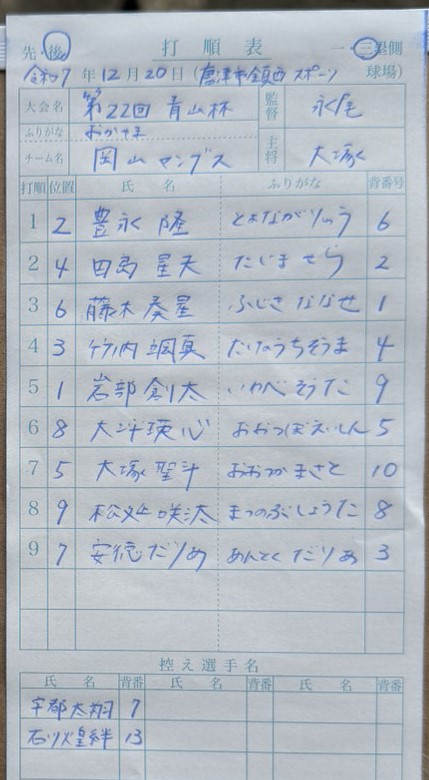 先・後 打順表 一・三塁側
令和7年12月20日(唐津市鎮西スポーツ 球場)
大会名 第22回 青山杯 監督 永尾
ふりがな おかやま
チーム名 岡山キングス 主将 大塚
打順 位置 氏名 ふりがな 背番号
1 2 豊永 隆 とよながりゅう 6
2 4 田島 星天 たじま せら 2
3 6 藤木 奏星 ふじき ななせ 1
4 3 竹内 颯真 たけのうちそうま 4
5 1 岩部 創太 いわべ そうた 9
6 8 大坪瑛心 おおつぼえいしん 5
7 5 大塚 聖斗 おおつか まさと 10
8 9 咲汰 まつのぶしょうた 8
9 7 安徳 あんとく 3
控え選手名
氏名 背番 氏名 背番 氏名 背番
宇都 太翔 7
石川煌絆 13